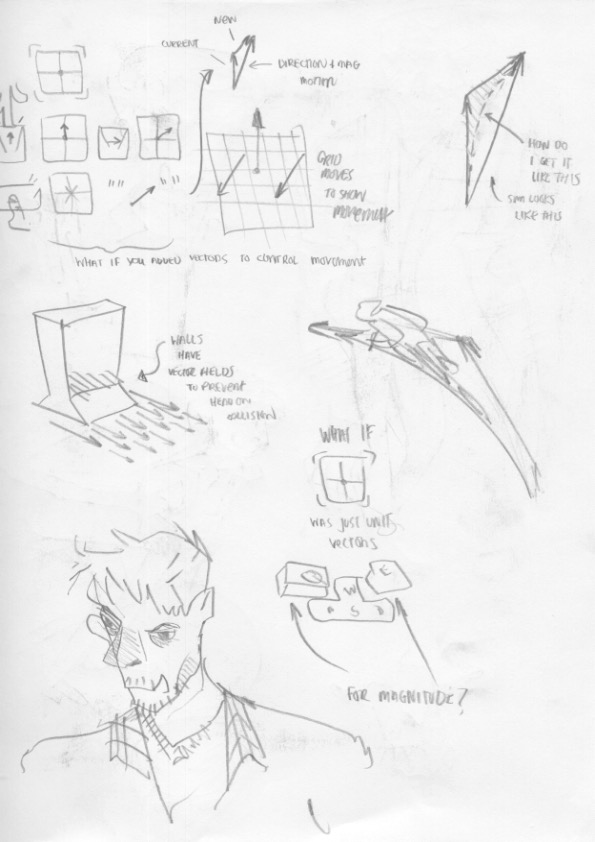 NEW
CURRENT
DIRECTION + MAG
MOTION
GRID
MOVES
TO SHOW
MOVEMENT
HOW DO
I GET IT
LIKE THIS
SUM LOOKS
LIKE THIS
"" ""
WHAT IF YOU ADDED VECTORS TO CONTROL MOVEMENT
WALLS
HAVE
VECTOR FIELDS
TO PREVENT
HEAD ON
COLLISION
WHAT IF
WAS JUST UNIT
VECTORS
Q W E
A S D
FOR MAGNITUDE?